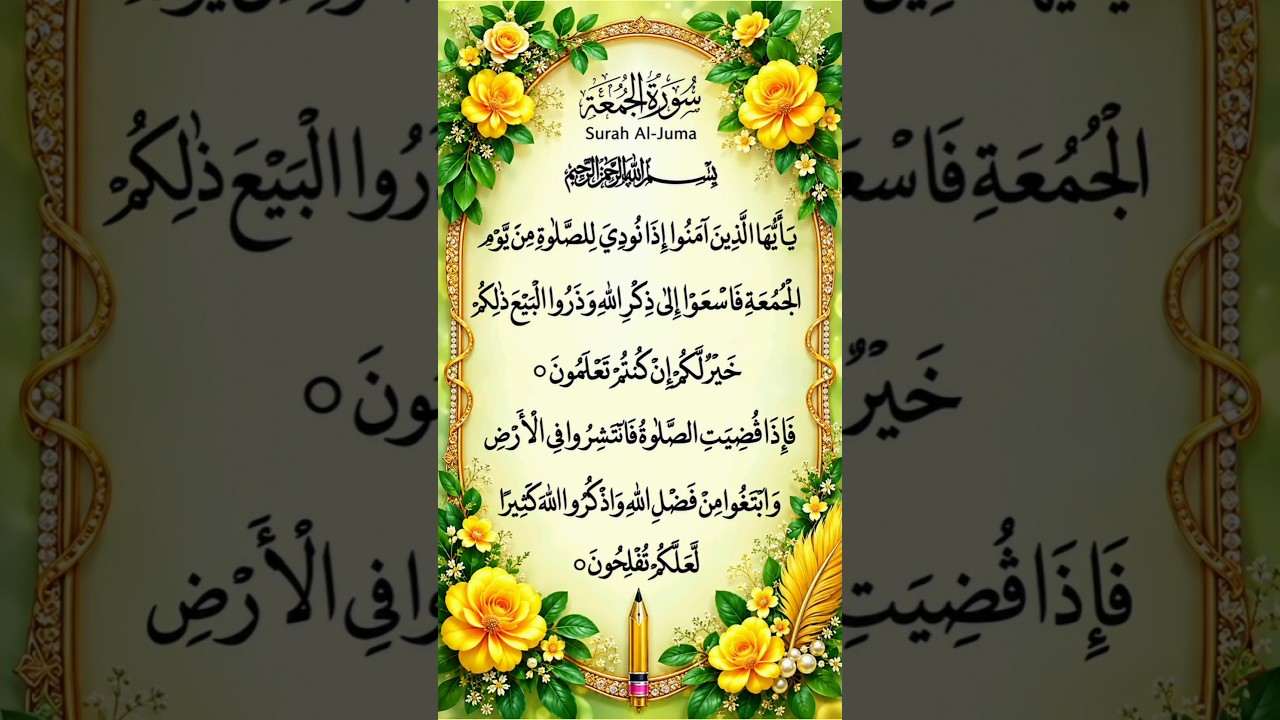 سُورَةُ الْجُمُعَةِ
Surah Al-Juma
بِسْمِ اللَّهِ الرَّحْمَٰنِ الرَّحِيمِ
يَأَيُّهَا الَّذِينَ آمَنُوا إِذَا نُودِيَ لِلصَّلٰوةِ مِنَ يَّوْمِ
الْجُمُعَةِ فَاسْعَوْا إِلىٰ ذِكْرِ اللهِ وَذَرُوا الْبَيْعَ ذٰلِكُمْ
خَيْرٌ لَّكُمْ إِنْ كُنْتُمْ تَعْلَمُونَ ○
فَإِذَا قُضِيَتِ الصَّلٰوةُ فَانْتَشِرُوا فِي الْأَرْضِ
وَابْتَغُوا مِنْ فَضْلِ اللهِ وَاذْكُرُوا اللهَ كَثِيرًا
لَّعَلَّكُمْ تُفْلِحُونَ ○